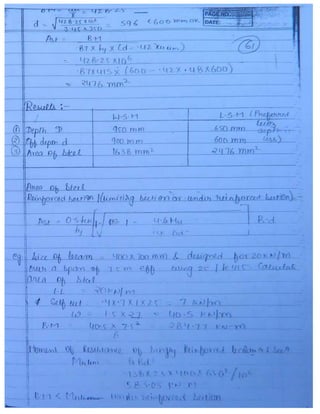 PAGE NO.
d = √ 428.25×10⁶ / 3.45×350 = 596 < 600 mm OK DATE
61
Ast = BM
.87 × fy × (d - .42 Xumax)
= 428.25×10⁶
.87×415× (600 - .42 × .48×600)
= 2476 mm²
Results :-
W.S.M L.S.M (Preferred
① Depth D 950 mm 650 mm
② Eff depth d 900 mm 600 mm
③ Area of steel 1638 mm² 2476 mm²
Area of steel
Reinforced section (limiting section or under reinforced section).
Ast = 0.5 fck / fy [ 1 - √ 1 - 4.6 Mu / fck bd² ] B.d
Eg Size of beam = 400 × 700 mm & designed for 20 KN/m
over a span of 7.5 m eff using 25 / fe 415 Calculate
area of steel
LL = 20 KN/m
Self wt = .4×.7×1×25 = 7 KN/m
ω = 1.5 × 27 = 40.5 KN/m
BM = 40.5 × 7.5² / 8 = 284.77 KN-m
Moment of Resistance of Singly Reinforced
Mulim = Q Bd²
= .138×25×400×650² / 10⁶
583.05 KN.M
BM < Mulim under reinforced section